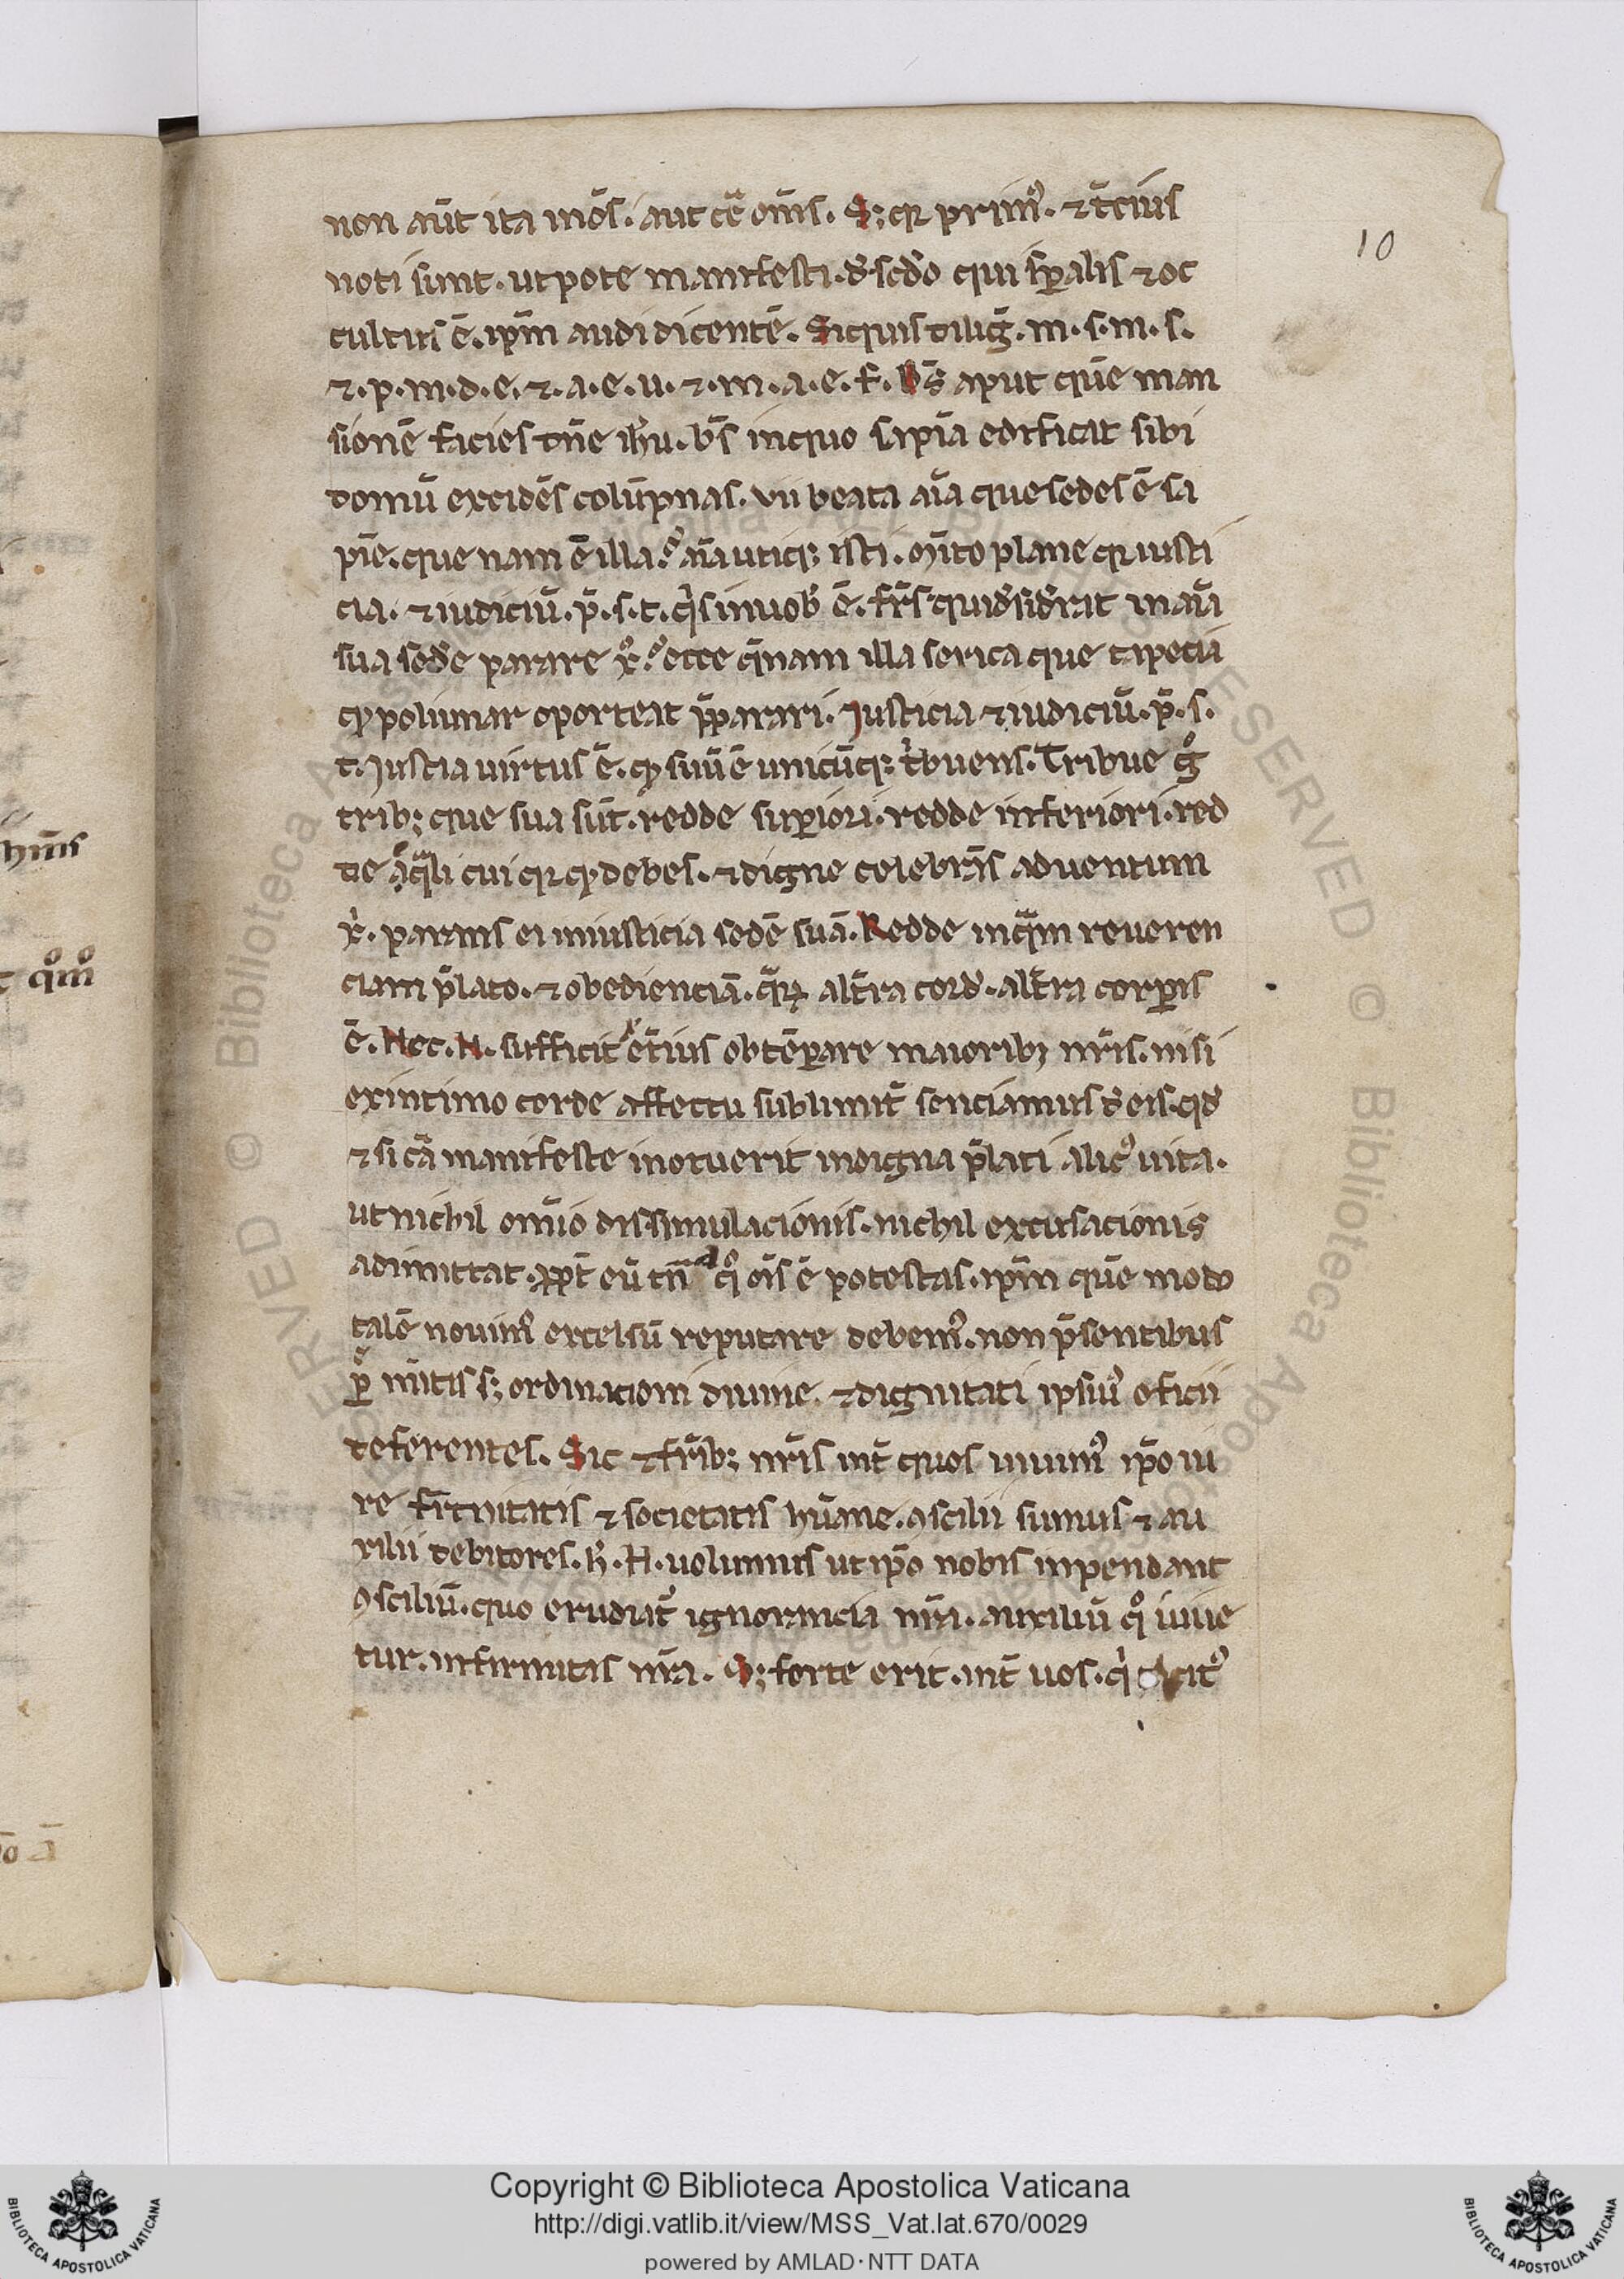 non aūt ita inōs. aut cē om̄s. S; qr prim᾽. ⁊ t̄cius
noti sunt. utpote manifesti. d̓ scd̓o qui sp̄alis ⁊ oc
cultus ē. ip̄m audi dicentē. Siquis diliḡ. m. s. m. s.
⁊. p. m. d. e. ⁊. a. e. u. ⁊. m. a. e. f. b̄s aput quē man
sionē facies dn̄e ih̄u. b̄s in quo sapīa edificat sibi
domū excidēs colūpnas. vii beata aīa que sedes ē sa
pīe. que nam ē illa? aīa utiq; iusti. m̄ito plane qr iusti
cia. ⁊ iudiciū. p̄. s. t. q̓s in uob̓ ē. fr̄s qui d̓sid̓rat in aīa
sua sed̓e parare x̊? ecce q̄nam illa serica que tapecia
qd̓ puluinar oporteat p̄parari. Iusticia ⁊ iudiciū. p̄. s.
t. Iusticia uirtus ē. qd̓ suū ē unicūq; t̓buens. Tribue g̊
trib; que sua sūt. redde sup̄iori. redde inferiori. red
de eq̄li cuiq; qd̓ debes. ⁊ digne celebrās aduentum
x̓. parans ei in iusticia sedē suā. Redde inq̄m reueren
ciam p̄lato. ⁊ obedienciā. q̄rꝝ alt̄ra cord̓. alt̄ra corp̄is
ē. Nec. N. sufficit ext̄ius obtēp̄are maiorib; nr̄is. nisi
ex intimo corde affectu sublimit̄ senciamus d̓ eis. qd̓
⁊ si tā manifeste inotuerit indigna p̄lati alic᾽ uita.
ut nichil om̄io dissimulacionis. nichil excusacionis
admittat. ꝓpt̄ eū tn̄ a q̊ oīs ē potestas. ip̄m quē modo
talē nouim᾽ excelsū reputare debem᾽. non p̄sentibus
p̄ m̄itis s; ordinacioni diuine. ⁊ dignitati ipsiu᾽ oficii
deferentes. Sic ⁊ fr̄ib; nr̄is int̄ quos uiuim᾽ ip̄o iu
re fr̄t̄nitatis ⁊ societatis hūane. ꝯscilii sumus ⁊ au
xilii debitores. h̓. N. uolumus ut ip̄o nobis inpendant
ꝯsciliū. quo erudiat᾽ ignorancia nr̄a. auxiliū q̊ iuue
tur. infirmitas nr̄a. S; forte erit. int̄ uos. q̓
10
hm̄s
q̊m̊
Copyright © Biblioteca Apostolica Vaticana
http://digi.vatlib.it/view/MSS_Vat.lat.670/0029
powered by AMLAD·NTT DATA
BIBLIOTECA APOSTOLICA VATICANA
BIBLIOTECA APOSTOLICA VATICANA